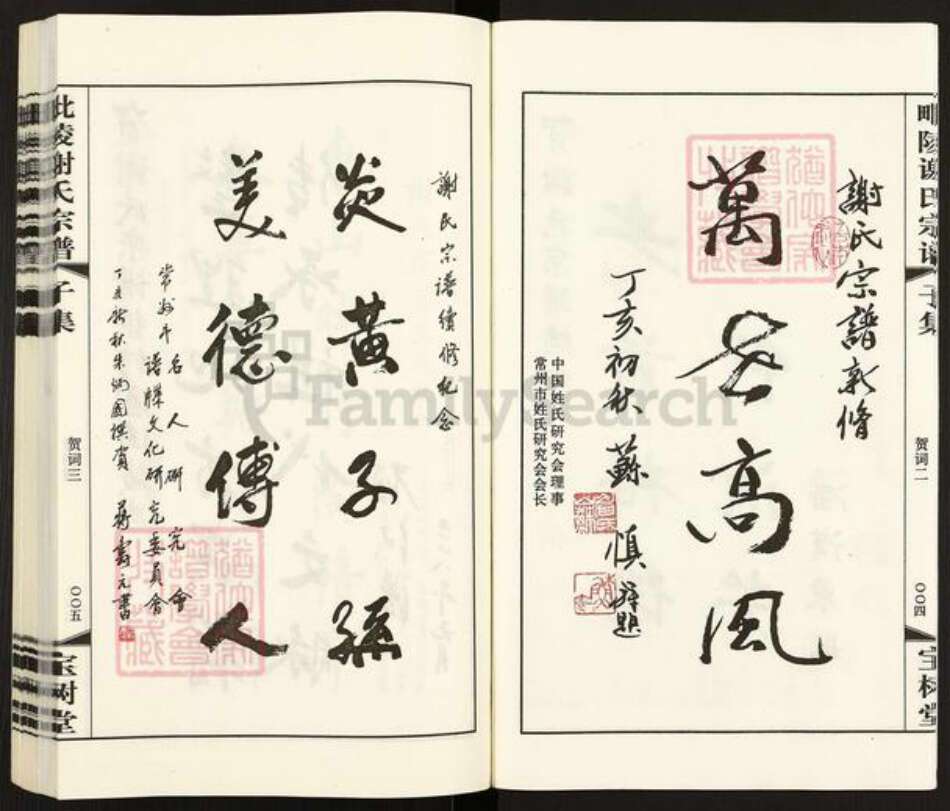 毗陵谢氏宗谱
子集
贺词二
〇〇四
宝树堂
謝氏宗譜新修
萬世高風
丁亥初秋 蘇慎 题
中国姓氏研究会理事
常州市姓氏研究会会长
謝氏宗譜續修紀念
炎黃子孫
美德傳人
常州市名人研究会
谱牒文化研究委員會
丁亥新秋朱炳國撰賀 蔣壽元書
毗陵谢氏宗谱
子集
贺词三
〇〇五
宝树堂
FamilySearch